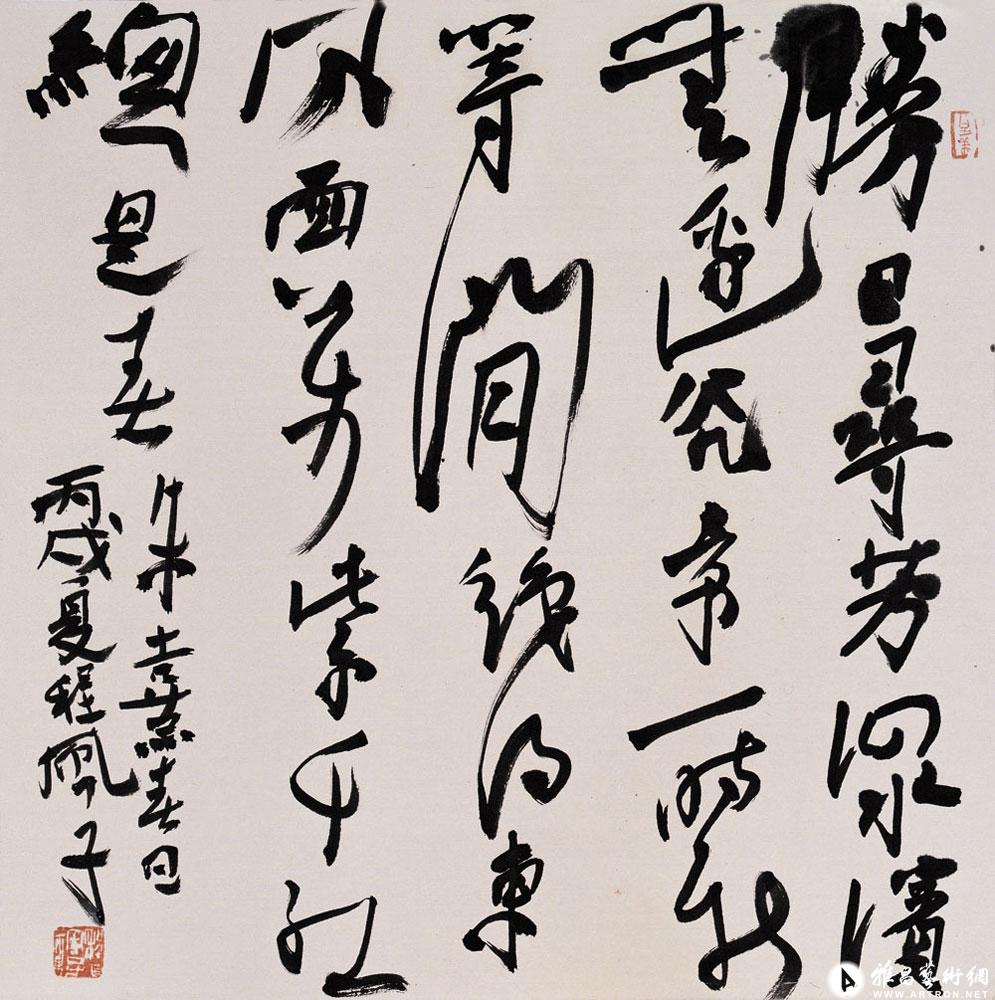 勝日尋芳泗水濱
無邊光景一時新
等閒識得東
風面萬紫千紅
總是春
朱熹春日
丙戌夏程風子
雅昌藝術網
WWW.ARTRON.NET